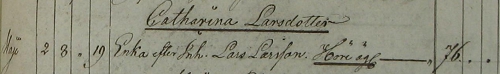 Catharina Larsdotter
Maji 2 8 " 19 Enka efter Inh. Lars Larsson. Höre äg — " 76. . .